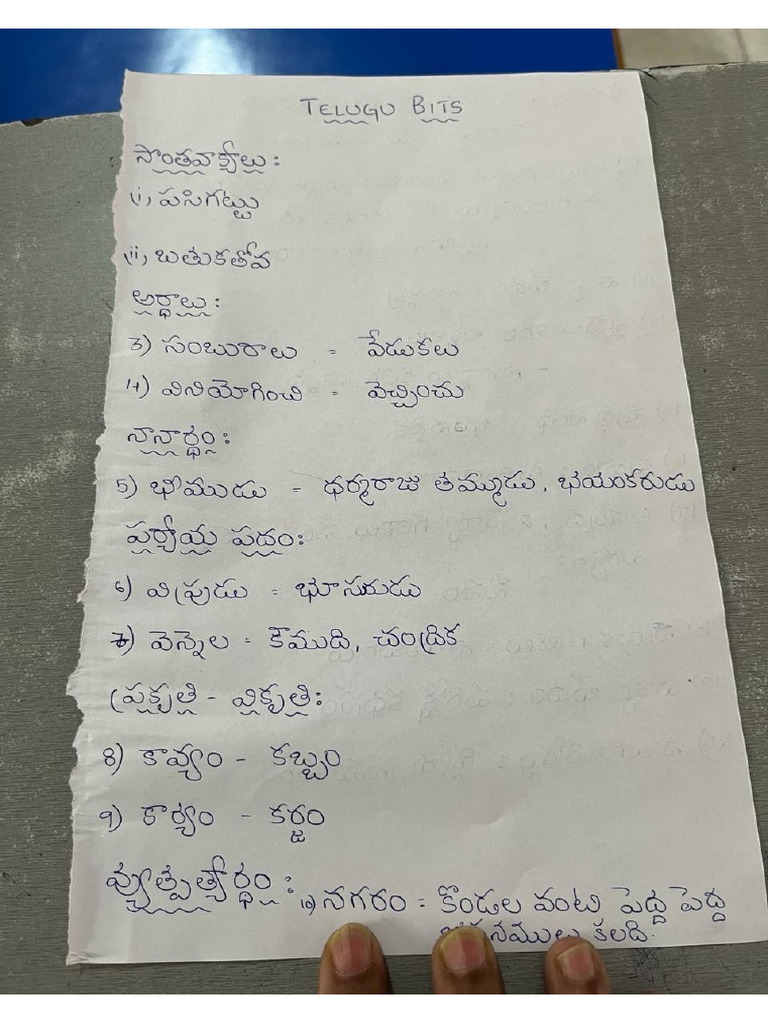 TELUGU BITS
సొంతవాక్యాలు :
(i) పసిగట్టు
(ii) బతుకతోవ
అర్థాలు :
3) సంబురాలు = వేడుకలు
4) వినియోగించి = వెచ్చించు
నానార్థం :
5) భీముడు = ధర్మరాజు తమ్ముడు, భయంకరుడు
పర్యాయ పదం :
6) విప్రుడు = భూసురుడు
7) వెన్నెల = కౌముది, చంద్రిక
ప్రకృతి - వికృతి :
8) కావ్యం - కబ్బం
9) కార్యం - కర్జం
వ్యుత్పత్యార్థం :
10) నగరం = కొండల వంటి పెద్ద పెద్ద
భవనములు కలది.